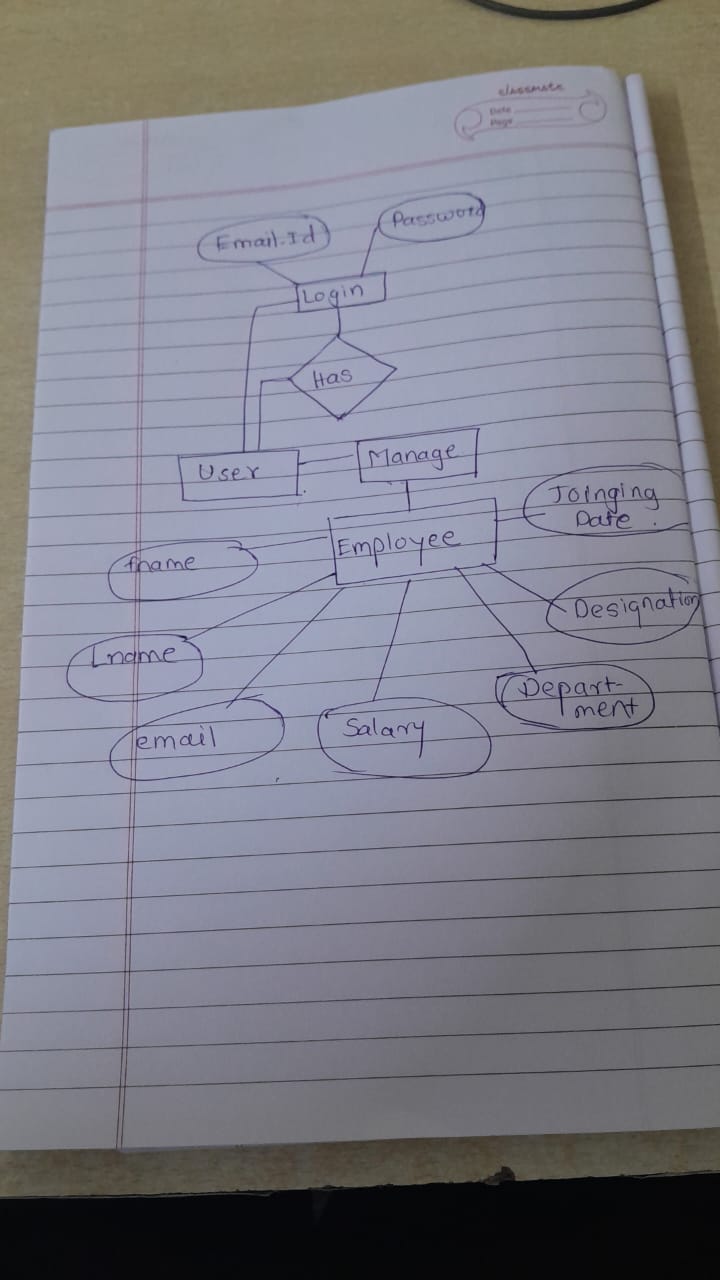 classmate
Date
Page
Email.Id
Password
Login
Has
User
Manage
Joinging
Date.
Employee
fname
Designation
Lname
Depart-
ment
email
Salary